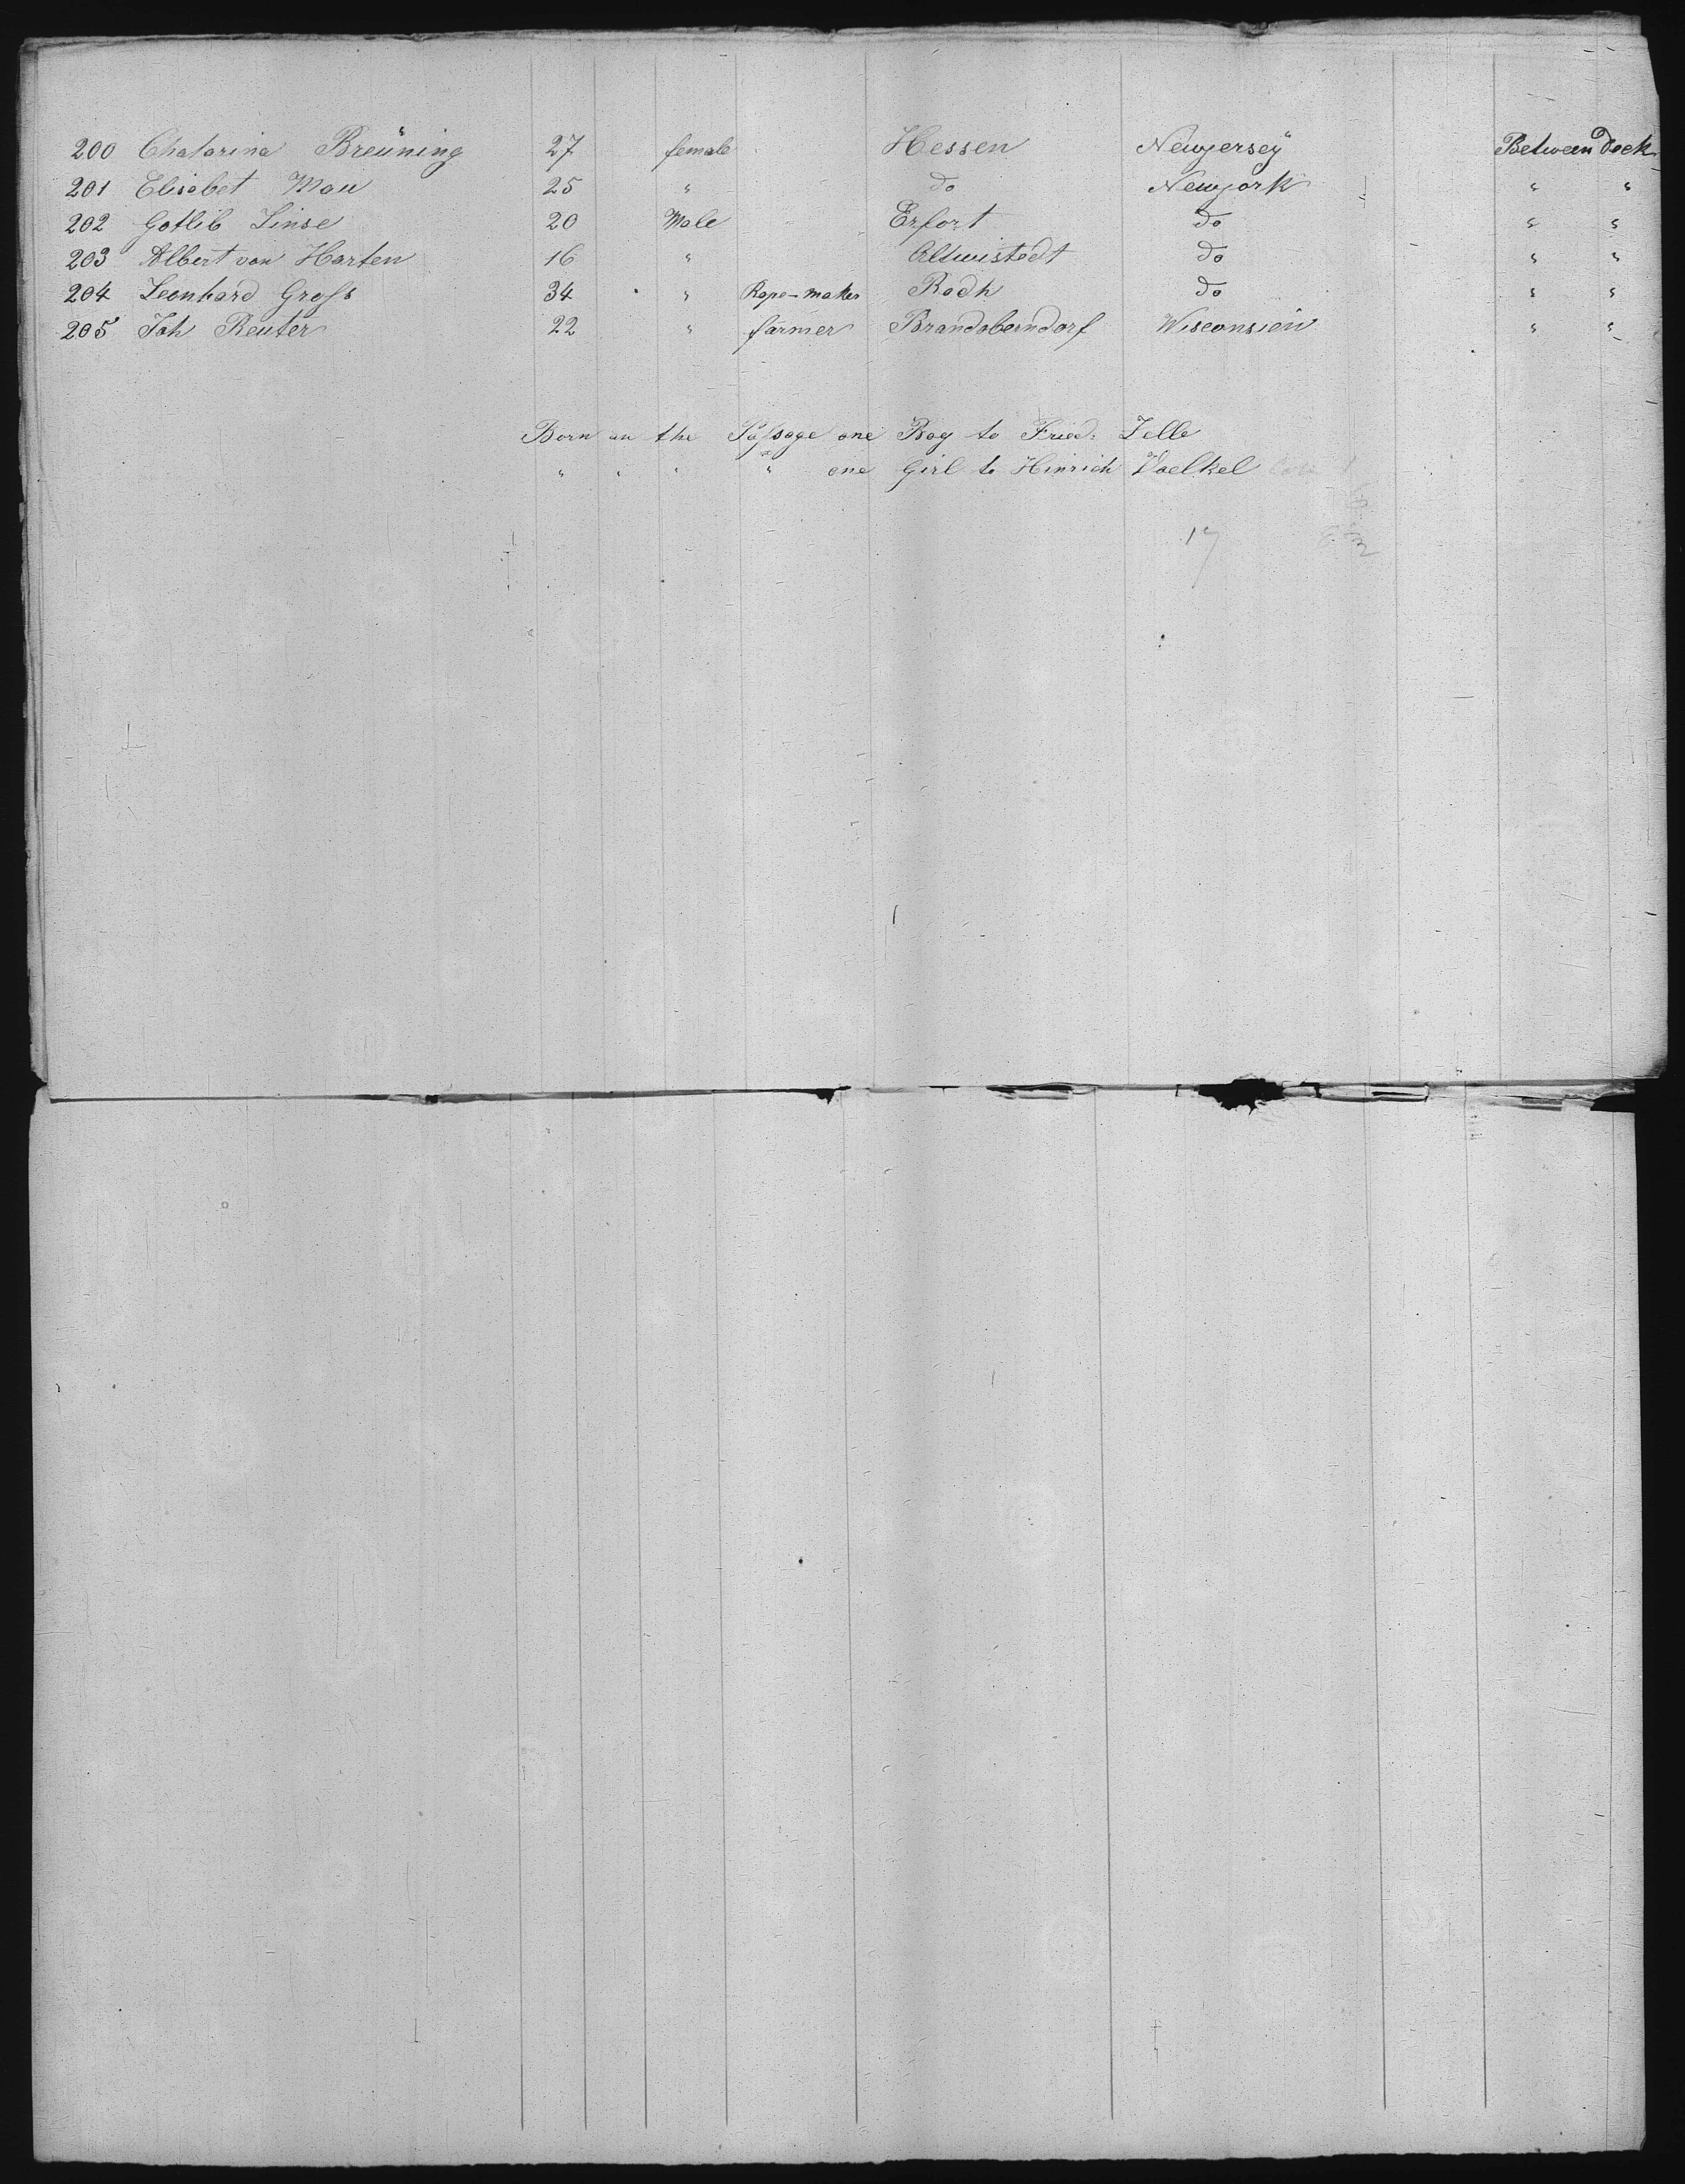 200 Chatarina Breüning 27 female Hessen Newjersey Between Deck
201 Elisabet Mau 25 " do Newjork " "
202 Gotlib Linse 20 Male Erfort do " "
203 Albert von Harten 16 " Altwistedt do " "
204 Leonhard Groſs 34 " Rope-maker Rodh do " "
205 Joh Reuter 22 " farmer Brandoberndorf Wisconsien " "
Born on the Paſsage one Boy to Fried: Zelle
" " " " one Girl to Hinrich Voelkel
17